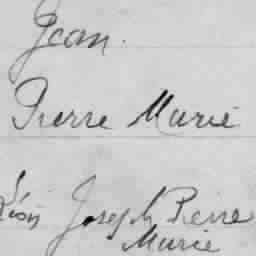 Jean.
Pierre Marie
Léon Joseph Pierre
Marie